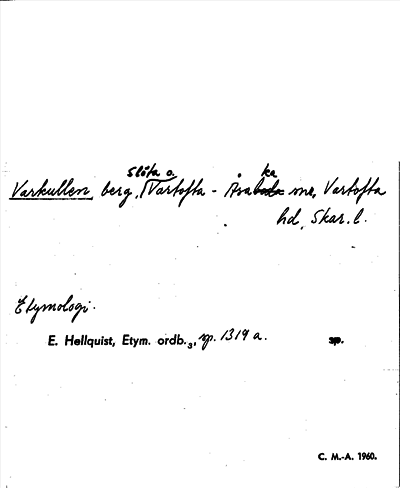 Slöta o. ka
Varkullen, berg, Vartofta - Åsa snr, Vartofta
hd, Skar. l.
Etymologi.
E. Hellquist, Etym. ordb.3, sp. 1319 a. sp.
C. M.-A. 1960.